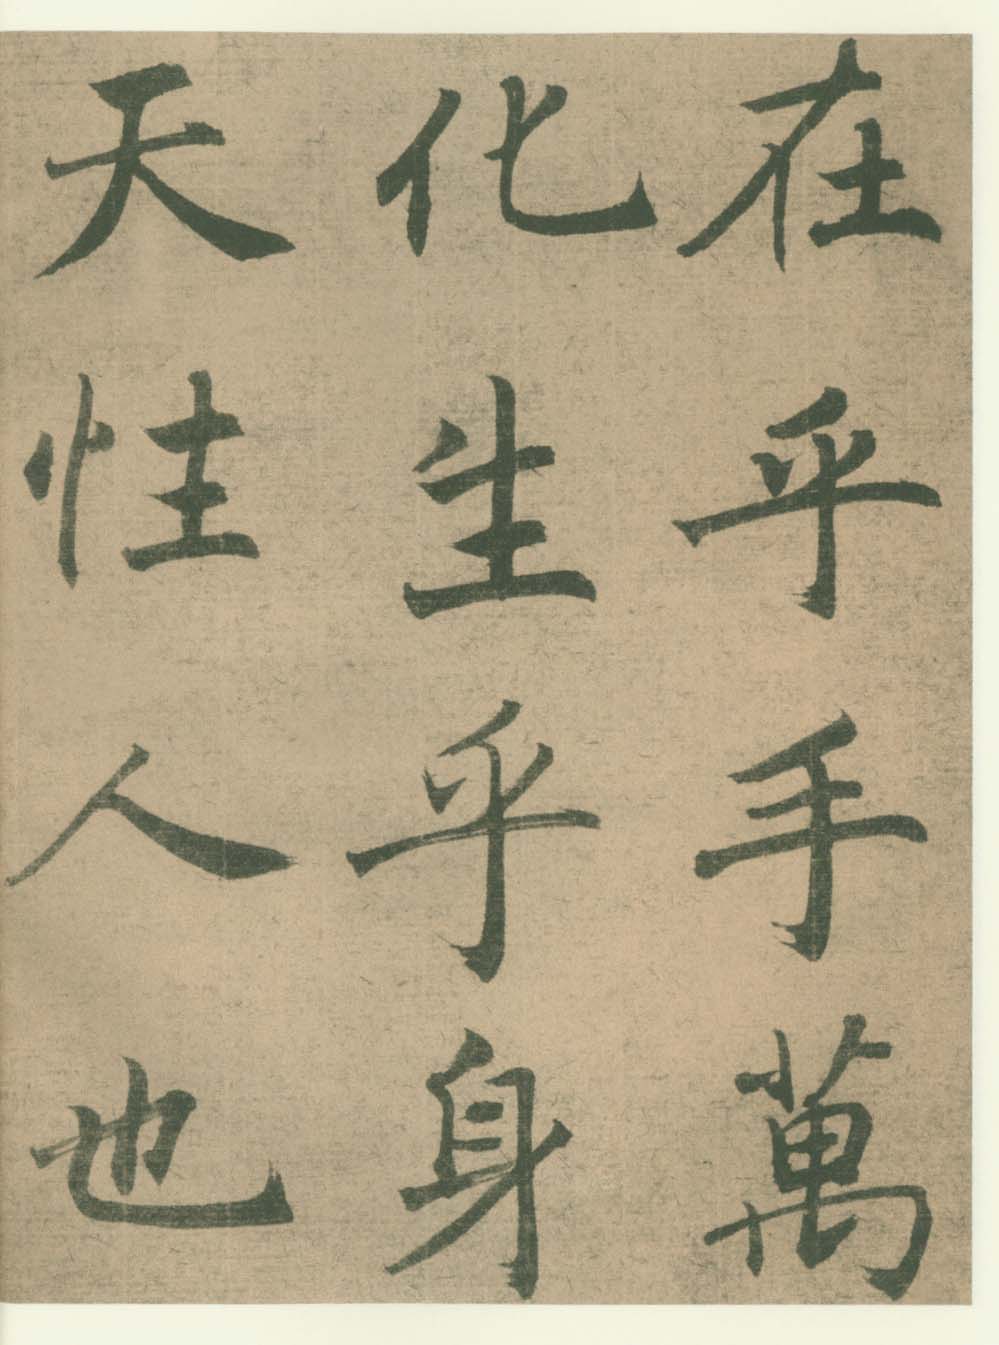 在乎手萬
化生乎身
天性人也